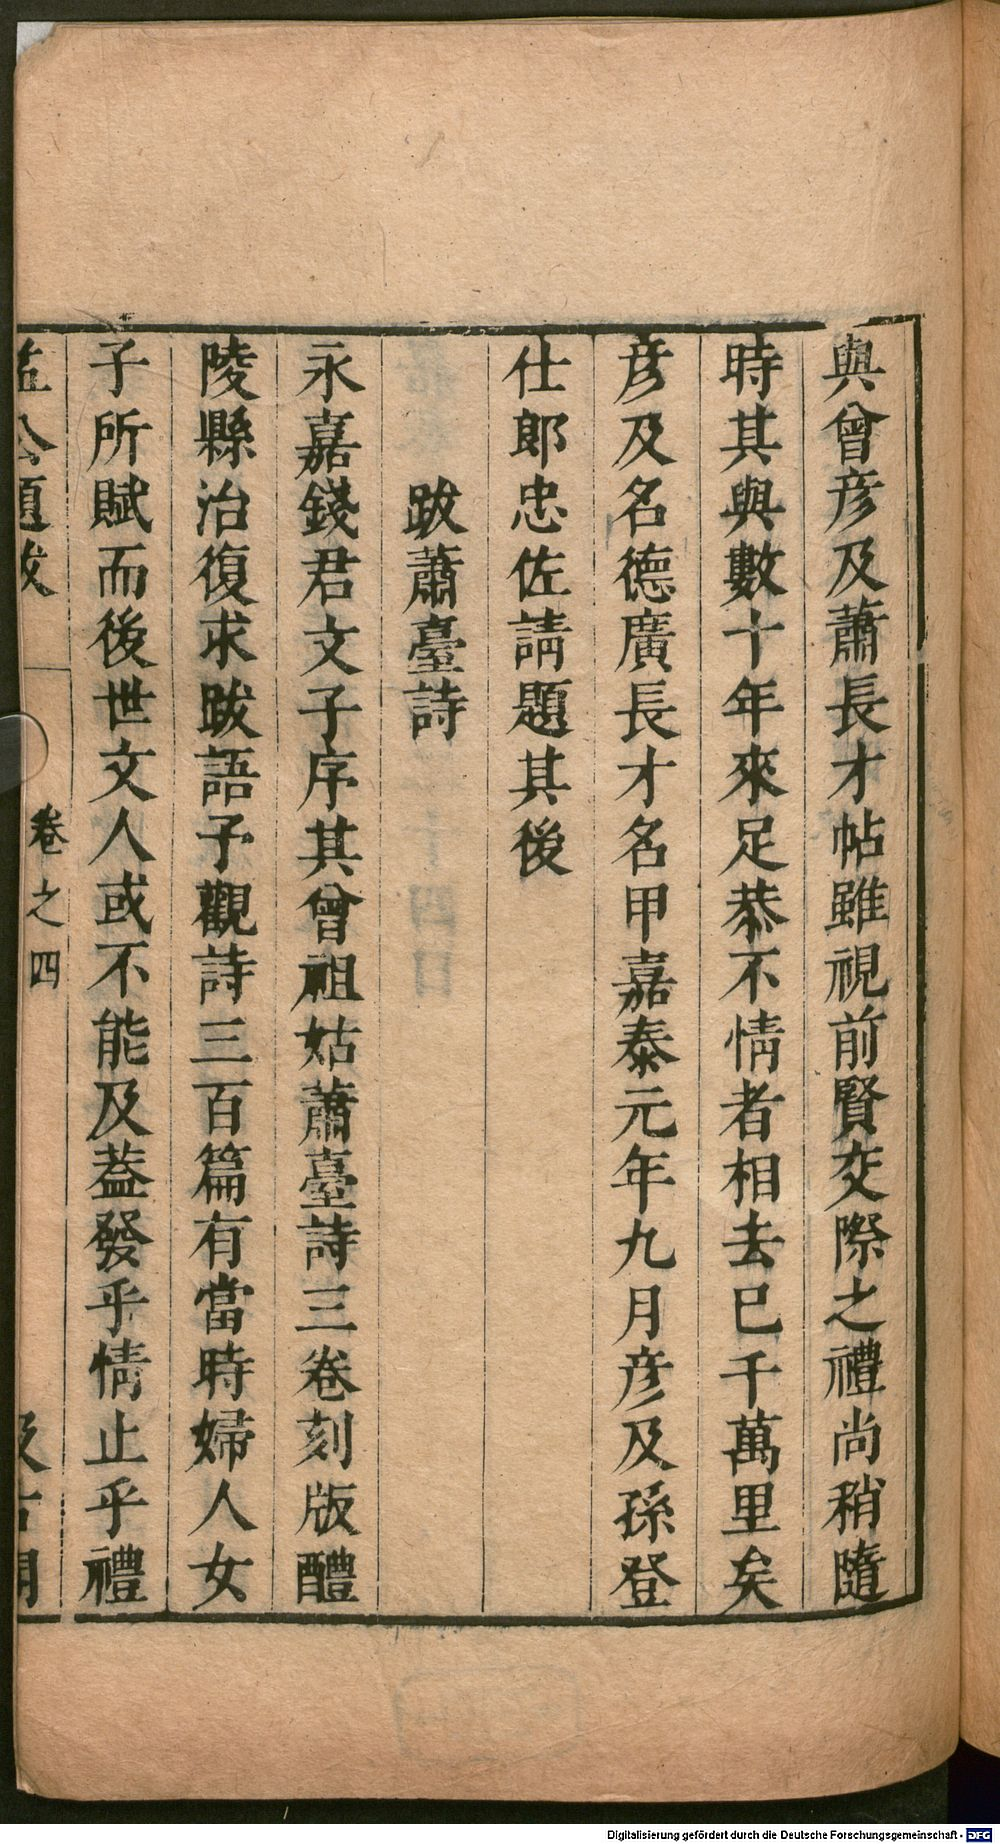 與曾彦及蕭長才帖雖視前賢交際之禮尚稍隨
時其與數十年來足恭不情者相去已千萬里矣
彦及名德廣長才名甲嘉泰元年九月彦及孫登
仕郎忠佐請題其後
跋蕭臺詩
永嘉錢君文子序其曾祖姑蕭臺詩三卷刻版醴
陵縣治復求跋語予觀詩三百篇有當時婦人女
子所賦而後世文人或不能及葢發乎情止乎禮
益公題跋 卷之四 汲古閣
Digitalisierung gefördert durch die Deutsche Forschungsgemeinschaft - DFG